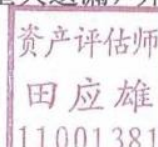 资产评估师
田应雄
11001381